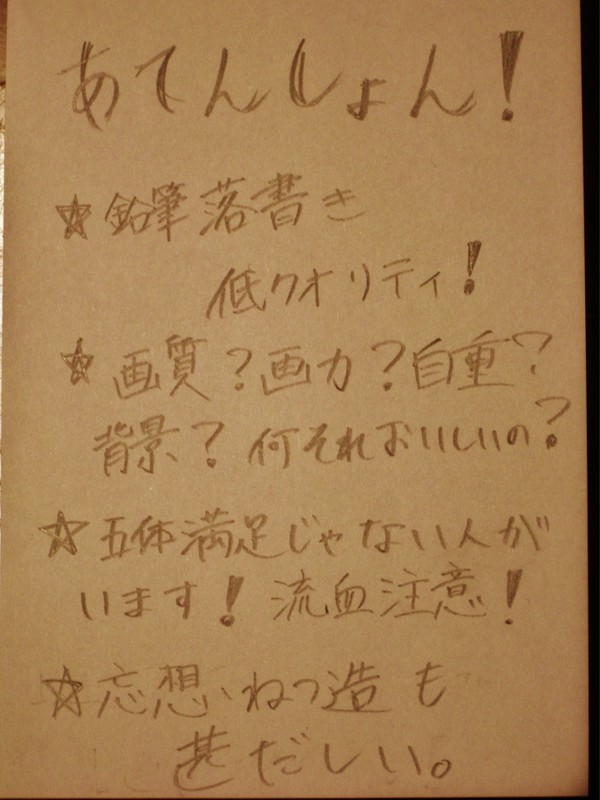 あてんしょん!
☆鉛筆落書き
低クオリティ!
☆画質?画力?自重?
背景?何それおいしいの?
☆五体満足じゃない人が
います!流血注意!
☆忘想、ねつ造も
甚だしい。